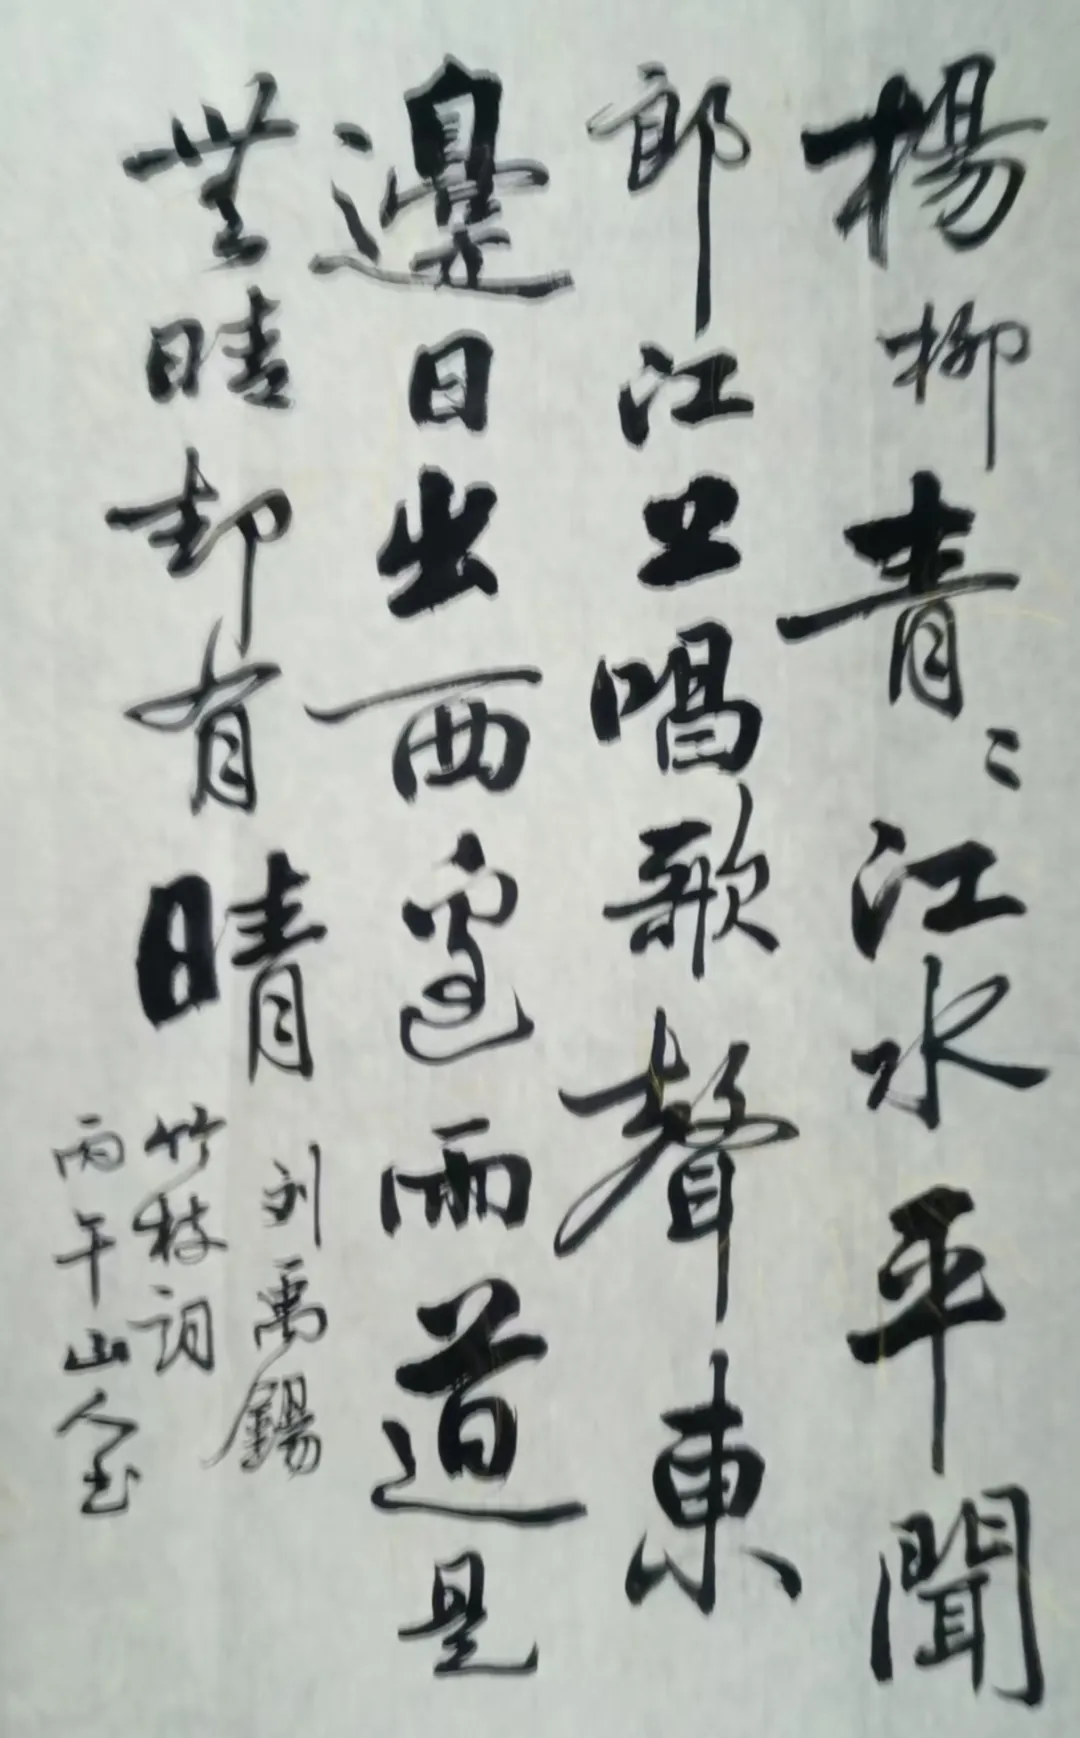 楊柳青〻江水平聞
郎江上唱歌聲東
邊日出西邊雨道是
無晴却有晴
刘禹錫
竹枝詞
丙午山人书